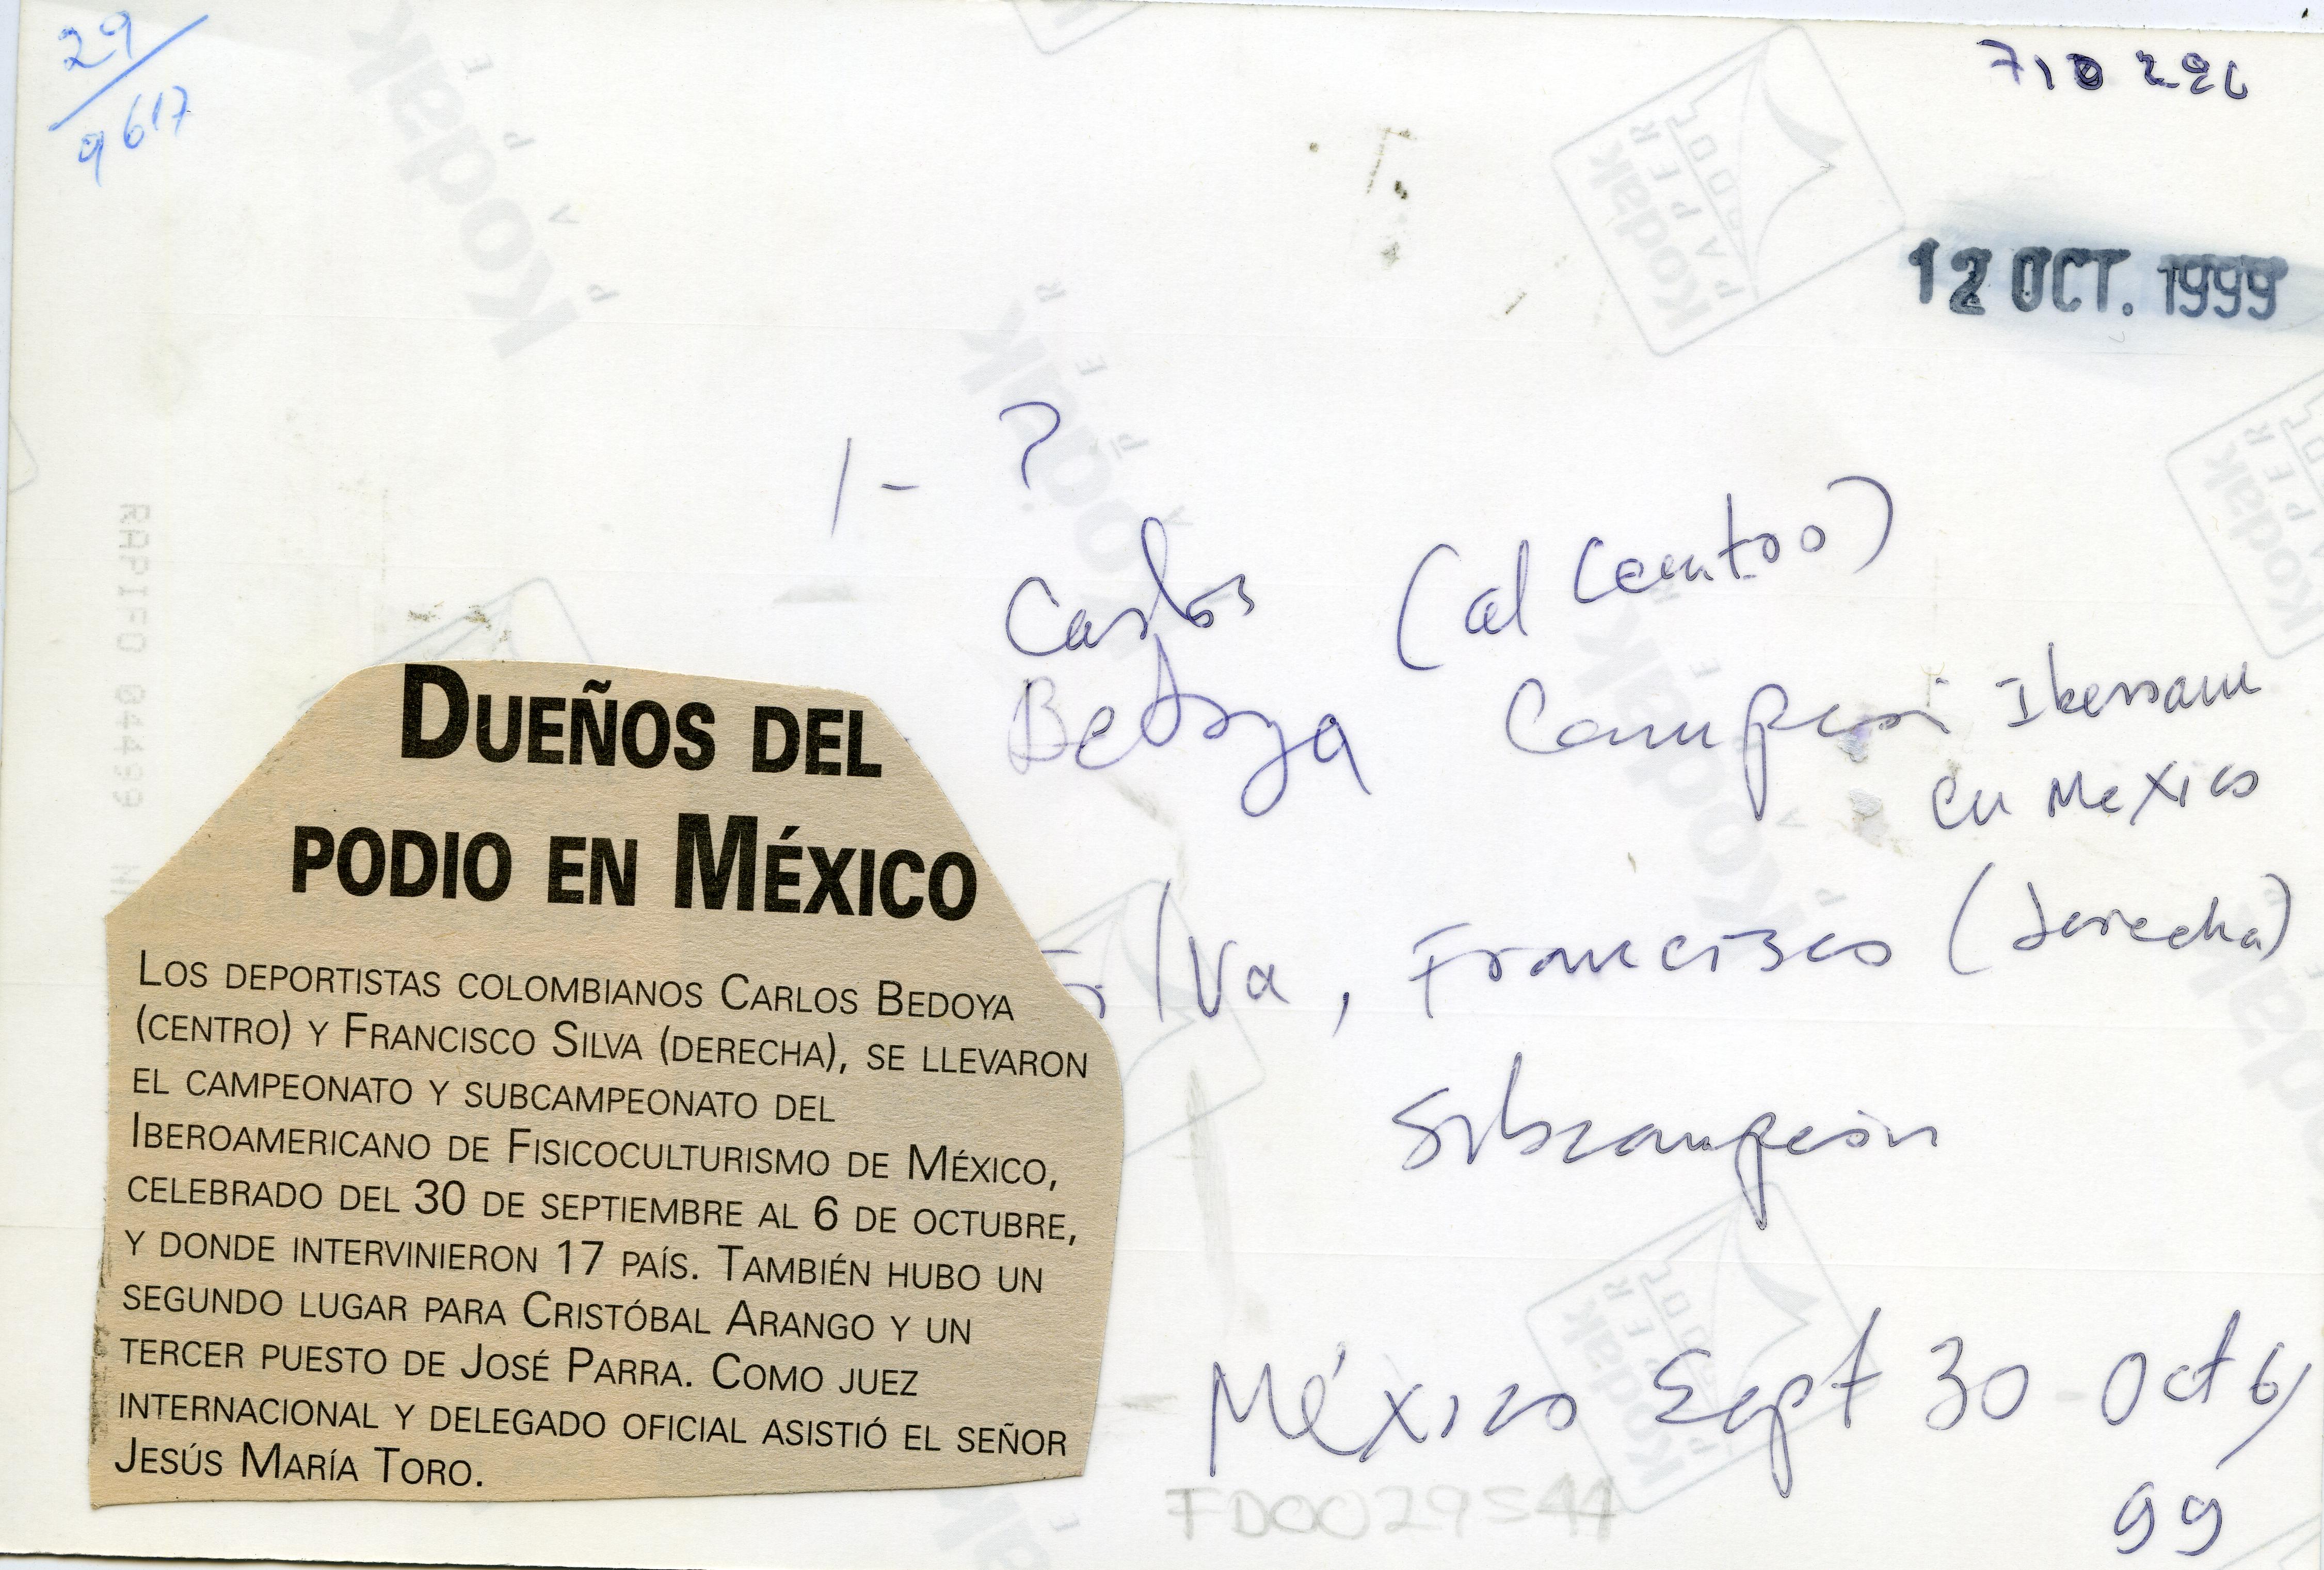 29
9617
710 296
12 OCT. 1999
1- ?
Carlos (al Centro)
Bedoya Campeón Iberoam
en Mexico
Silva, Francisco (derecha)
Subcampeón
México Sept 30 - Oct 6/
99
FD0029544
DUEÑOS DEL
PODIO EN MÉXICO
LOS DEPORTISTAS COLOMBIANOS CARLOS BEDOYA
(CENTRO) Y FRANCISCO SILVA (DERECHA), SE LLEVARON
EL CAMPEONATO Y SUBCAMPEONATO DEL
IBEROAMERICANO DE FISICOCULTURISMO DE MÉXICO,
CELEBRADO DEL 30 DE SEPTIEMBRE AL 6 DE OCTUBRE,
Y DONDE INTERVINIERON 17 PAÍS. TAMBIÉN HUBO UN
SEGUNDO LUGAR PARA CRISTÓBAL ARANGO Y UN
TERCER PUESTO DE JOSÉ PARRA. COMO JUEZ
INTERNACIONAL Y DELEGADO OFICIAL ASISTIÓ EL SEÑOR
JESÚS MARÍA TORO.
RAPIFO 04499
Kodak
PAPER